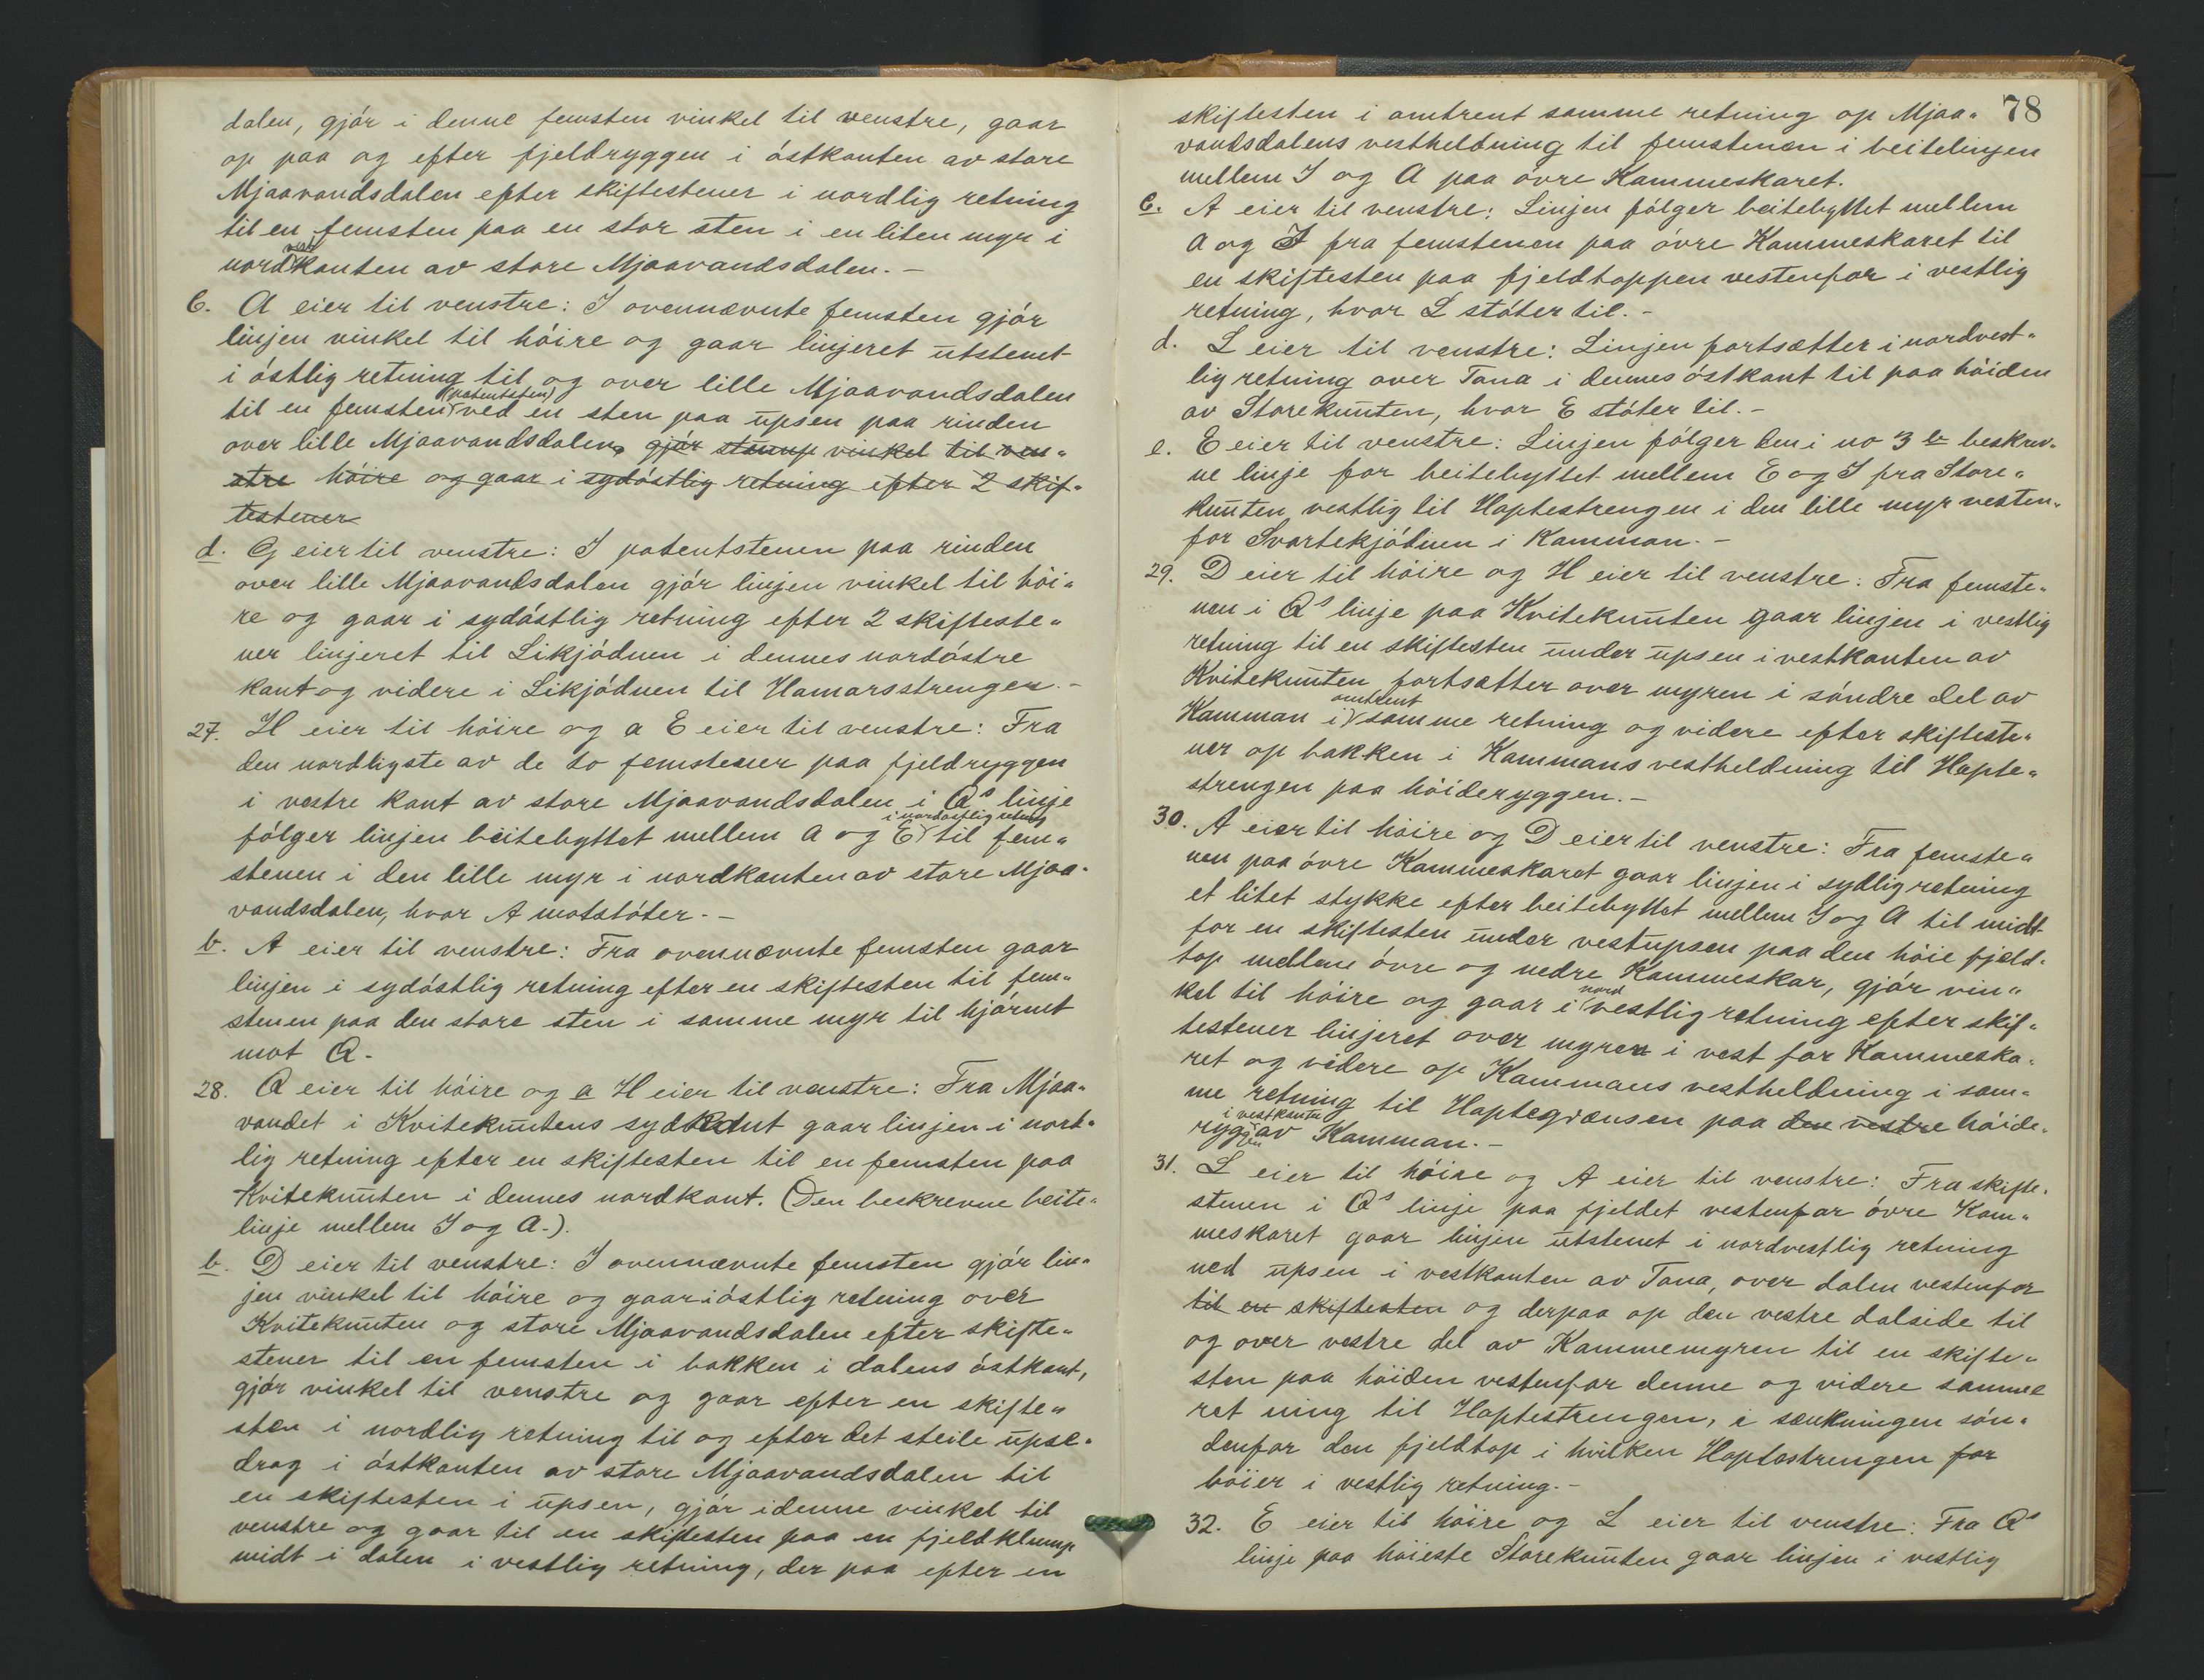 dalen, gjör i denne femsten vinkel til venstre, gaar
op paa og efter fjeldryggen i östkanten av store
Mjaavandsdalen efter skiftestener i nordlig retning
til en femsten paa en stor sten i en liten myr i
vest
nordkanten av store Mjaavandsdalen. -
C. A eier til venstre: I ovennævnte femsten gjör
linjen vinkel til höire og gaar linjeret utstenet
i östlig retning til og over lille Mjaavandsdalen
(patentsten)
til en femsten ved en sten paa upsen paa rinden
over lille Mjaavandsdalen, gjör stump vinkel til ven„
stre höire og gaar i sydöstlig retning efter 2 skif„
testener
d. G eier til venstre: I patentstenen paa rinden
over lille Mjaavandsdalen gjör linjen vinkel til höi„
re og gaar i sydöstlig retning efter 2 skifteste„
ner linjeret til Likjödnen i dennes nordöstre
kant og videre i Likjödnen til Hamarsstrengen. -
27. H eier til höire og a E eier til venstre: Fra
den nordligste av de to femstener paa fjeldryggen
i vestre kant av store Mjaavandsdalen i Qs linje
i nordöstlig retning
fölger linjen beitebyttet mellem A og E til fem„
stenen i den lille myr i nordkanten av store Mjaa„
vandsdalen, hvor A motstöter. -
b. A eier til venstre: Fra ovennævnte femsten gaar
linjen i sydöstlig retning efter en skiftesten til fem„
stenen paa den store sten i samme myr til hjörnet
mot Q. -
28. Q eier til höire og a H eier til venstre: Fra Mjaa„
vandet i Kviteknutens sydkant gaar linjen i nord„
lig retning efter en skiftesten til en femsten paa
Kviteknuten i dennes nordkant. (Den beskrevne beite„
linje mellem I og A.).
b. D eier til venstre: I ovennævnte femsten gjör lin„
jen vinkel til höire og gaar i östlig retning over
Kviteknuten og store Mjaavandsdalen efter skifte„
stener til en femsten i bakken i dalens östkant,
gjör vinkel til venstre og gaar efter en skifte„
sten i nordlig retning til og efter det steile upse„
drag i östkanten av store Mjaavandsdalen til
en skiftesten i upsen, gjör i denne vinkel til
venstre og gaar til en skiftesten paa en fjeldklump
midt i dalen i vestlig retning, der paa efter en
78
skiftesten i omtrent samme retning op Mjaa„
vandsdalens vestheldning til femstenen i beitelinjen
mellem I og A paa övre Kammeskaret.
C. A eier til venstre: Linjen fölger beitebyttet mellem
A og I fra femstenen paa övre Kammeskaret til
en skiftesten paa fjeldtoppen vestenfor i vestlig
retning, hvor L stöter til. -
d. L eier til venstre: Linjen fortsætter i nordvest„
lig retning over Tana i dennes östkant til paa höiden
av Storeknuten, hvor E stöter til. -
e. E eier til venstre: Linjen fölger den i no 3 b beskrev„
ne linje for beitebyttet mellem E og I fra Store„
knuten vestlig til Haptestrengen i den lille myr vesten„
for Svartekjödnen i Kamman. -
29. D eier til höire og H eier til venstre: Fra femste„
nen i Qs linje paa Kviteknuten gaar linjen i vestlig
retning til en skiftesten under upsen i vestkanten av
Kviteknuten fortsætter over myren i söndre del av
omtrent
Kamman i samme retning og videre efter skifteste„
ner op bakken i Kammans vestheldning til Hapte„
strengen paa höideryggen. -
30. A eier til höire og D eier til venstre: Fra femste„
nen paa övre Kammeskaret gaar linjen i sydlig retning
et litet stykke efter beitebyttet mellem I og A til midt
for en skiftesten under vestupsen paa den höie fjeld„
top mellem övre og nedre Kammeskar, gjör vin„
nord
kel til höire og gaar i vestlig retning efter skif„
testener linjeret over myren i vest for Kammeska„
ret og videre op Kammans vestheldning i sam„
me retning til Haptegrænsen paa den vestre höide„
i vestkanten
ryggen av Kamman. -
31. L eier til höire og A eier til venstre: Fra skifte„
stenen i Qs linje paa fjeldet vestenfor övre Kam„
meskaret gaar linjen utstenet i nordvestlig retning
ned upsen i vestkanten av Tana, over dalen vestenfor
til en skiftesten og derpaa op den vestre dalside til
og over vestre del av Kammemyren til en skifte„
sten paa höiden vestenfor denne og videre samme
ret ning til Haptestrengen, i sænkningen sön„
denfor den fjeldtop i hvilken Haptestrengen for
böier i vestlig retning. -
32. E eier til höire og L eier til venstre: Fra Qs
linje paa höieste Storeknuten gaar linjen i vestlig